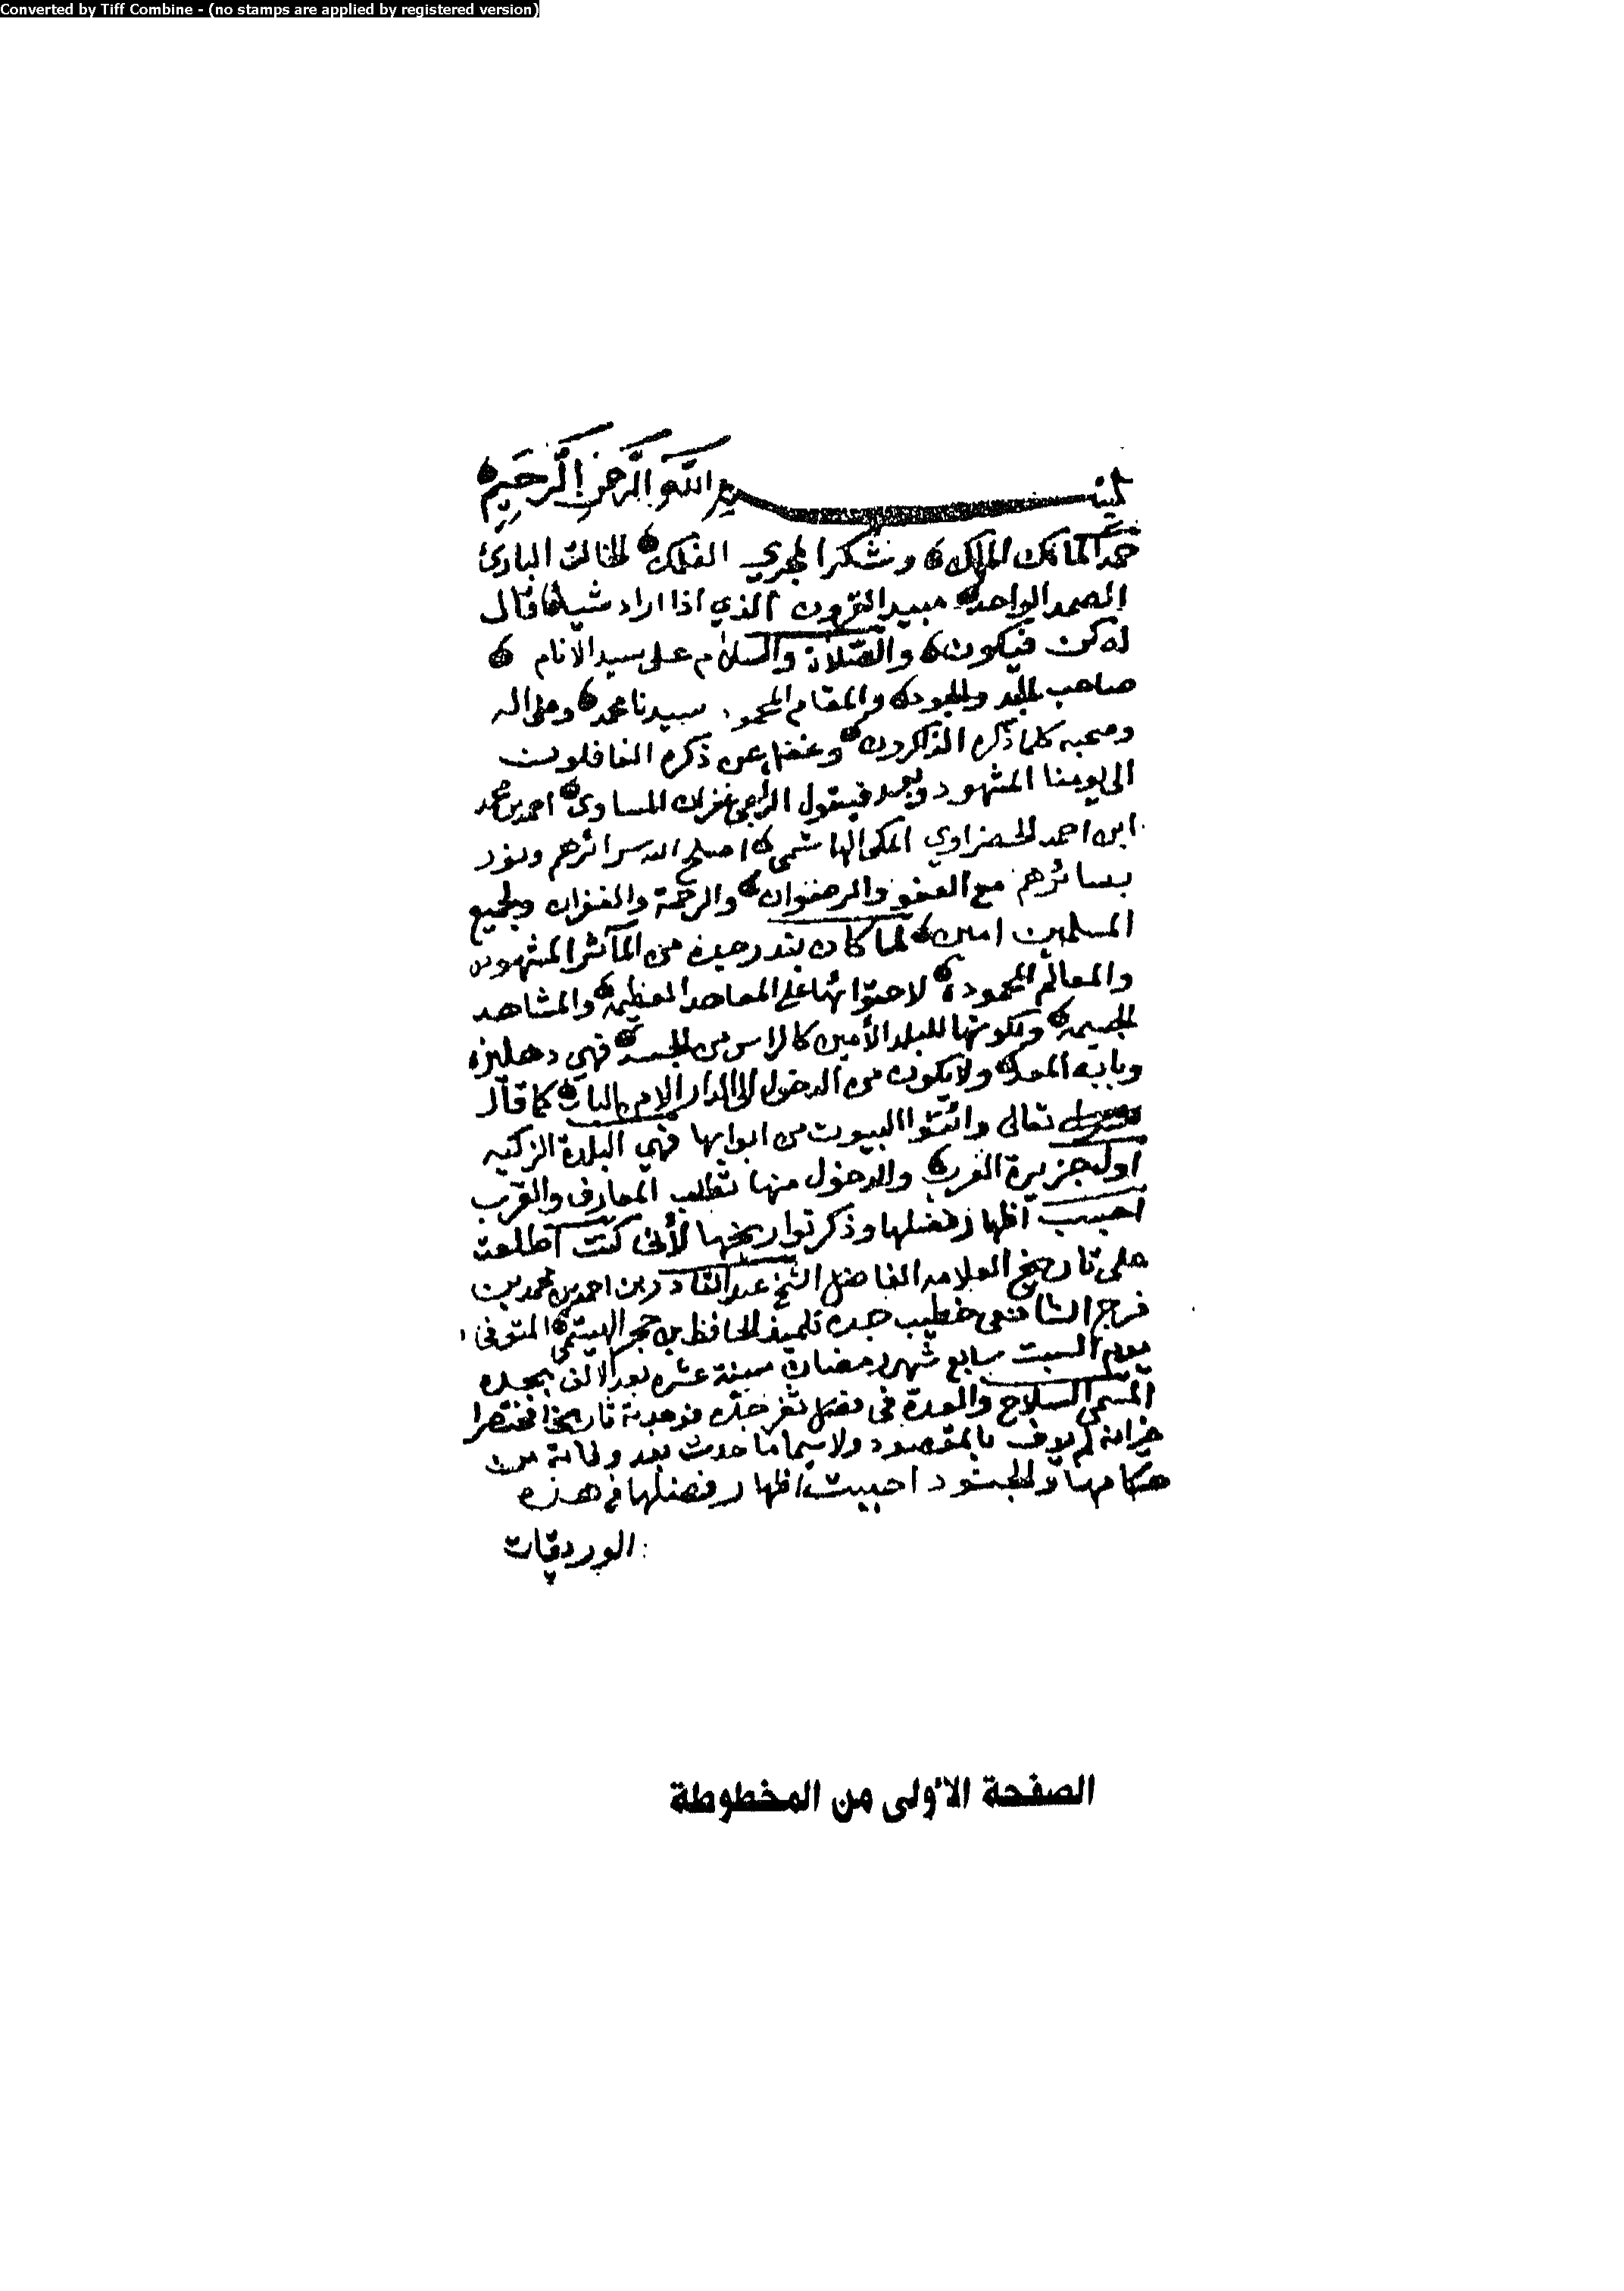 Converted by Tiff Combine - (no stamps are applied by registered version)
بسم الله الرحمن الرحيم
حمدا لمالك الملك وشكرا لمجري الفلك الخالق البارئ
الصمد الواحد مبيد القرون الذي اذا اراد شيئا قال
له كن فيكون والصلاة والسلام على سيد الانام
صاحب المجد والجود والمقام المحمود سيدنا محمد وعلى اله
وصحبه كلما ذكره الذاكرون وغفل عن ذكره الغافلون
الى يومنا المشهود وبعد فيقول الراجي غفران المساوى احمد بن محمد
ابن احمد الحضراوي المكي الهاشمي اصلح الله سرائرهم ونور
بصائرهم مع العفو والرضوان والرحمة والغفران ولجميع
المسلمين امين لما كان بندر جدة من المآثر المشهورة
والمعالم المحمودة لاحتوائها على المعاهد العظيمة والمشاهد
الجسيمة ولكونها للبلد الأمين كالراس من الجسد فهي دهليزه
وبابه المعد ولا يكون من الدخول الى الدار الا من الباب كما قال
تعالى وائتوا البيوت من ابوابها فهي البلدة الزكيه
اول جزيرة العرب والدخول منها لطالب المعارف والقرب
احببت اظهار فضلها وذكر تواريخها لأنى كنت اطلعت
على تاريخ العلامه الفاضل الشيخ عبد القادر بن احمد بن محمد بن
فرج الشافعى خطيب جده تلميذ الحافظ بن حجر الهيتمي المتوفى
يوم السبت سابع شهر رمضان سنة عشره بعد الالف بجده
المسمى السلاح والعدة فى فضل ثغر جده فوجدته تاريخا مختصرا
غير انه لم يوف بالمقصود ولا سيما ما حدث بعد وفاته من
حكامها والجنود احببت اظهار فضلها فى هذه
الوريقات
الصفحة الأولى من المخطوطة